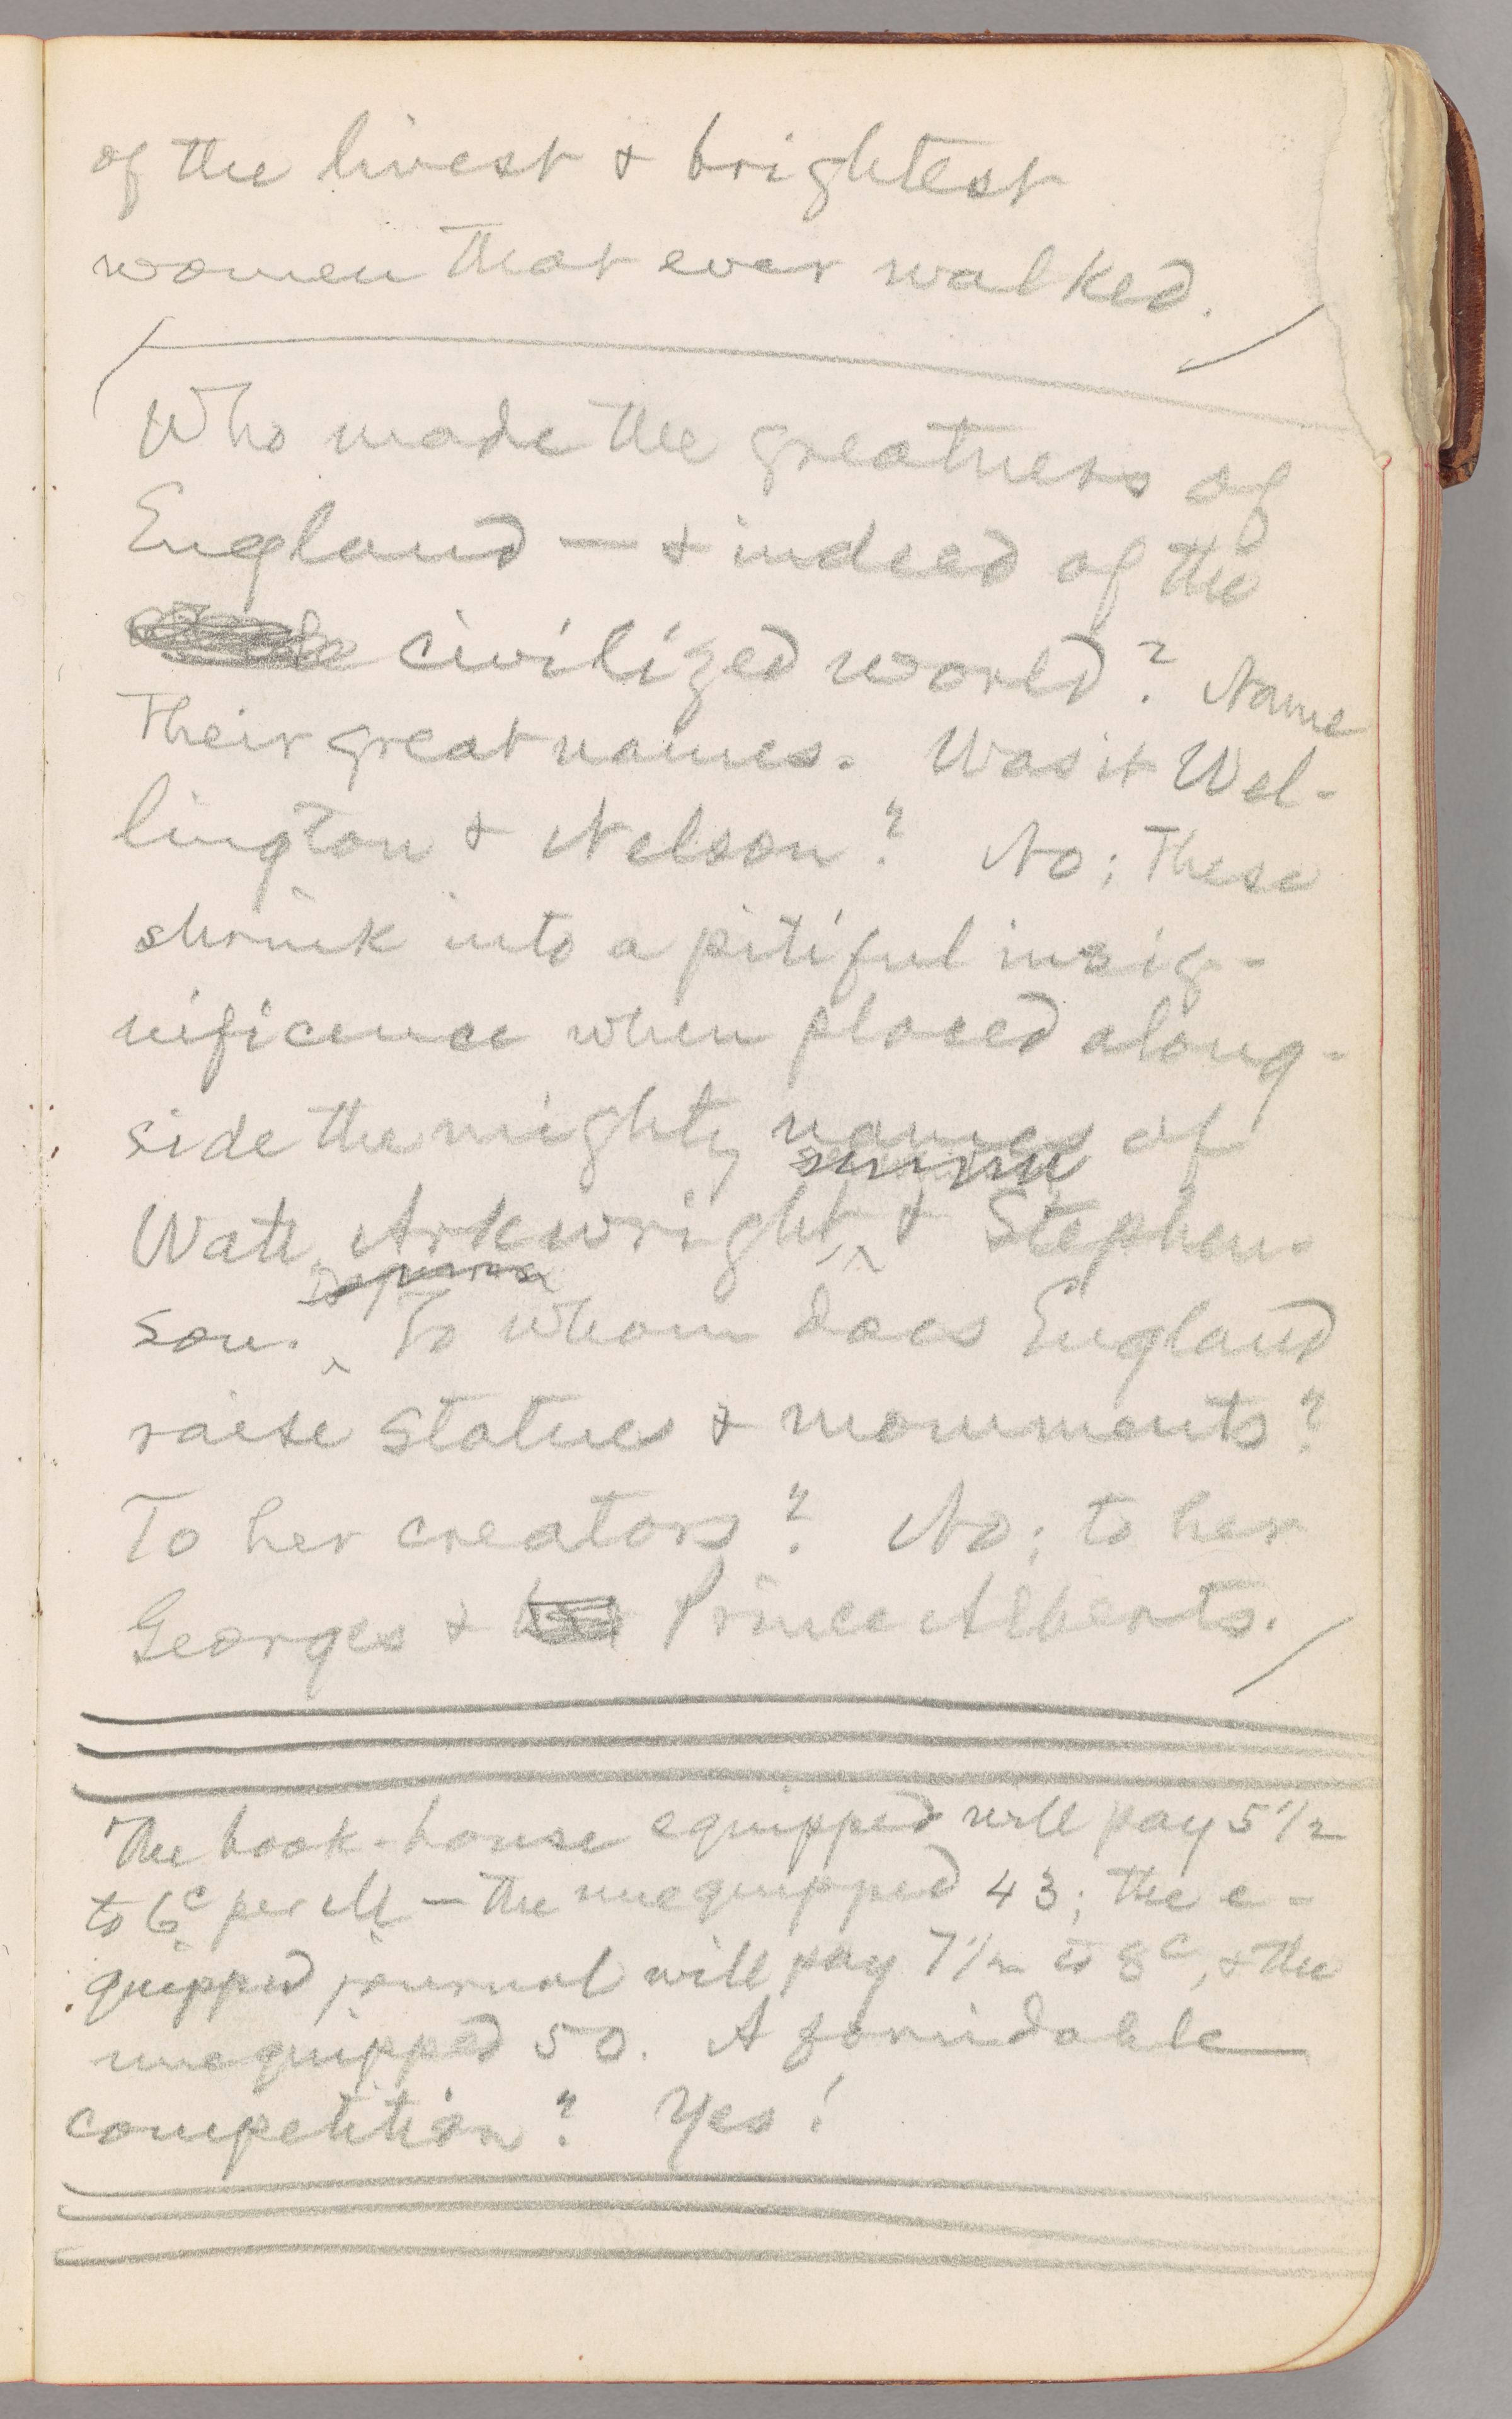 of the livest & brightest
women that ever walked.
Who made the greatness of
England — & indeed of the
civilized world? Name
their great names. Was it Wel-
lington & Nelson? No; these
shrink into a pitiful insig-
nificence when placed along-
side the mighty names of
Watt, Arkwright & Stephen-
son. To whom does England
raise statues & monuments?
To her creators? No; to her
Georges & Prince Alberts.
The book-house equipped will pay 5 1/2
to 6c per M — the unequipped 43; the e-
quipped journal will pay 7 1/2 to 8c, & the
unequipped 50. A formidable
competition? Yes!